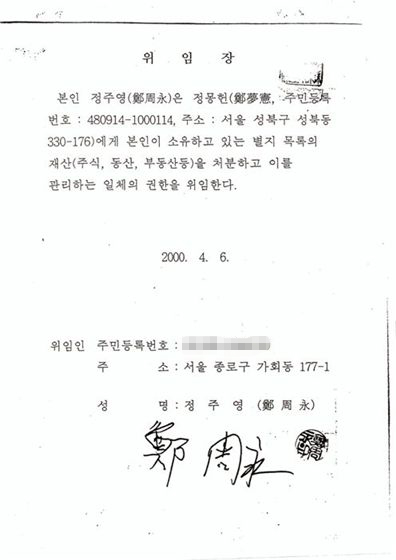 위 임 장
본인 정주영(鄭周永)은 정몽헌(鄭夢憲, 주민등록
번호 : 480914-1000114, 주소 : 서울 성북구 성북동
330-176)에게 본인이 소유하고 있는 별지 목록의
재산(주식, 동산, 부동산등)을 처분하고 이를
관리하는 일체의 권한을 위임한다.
2000. 4. 6.
위임인 주민등록번호 :
주 소 : 서울 종로구 가회동 177-1
성 명 : 정 주 영 (鄭 周 永)
鄭 周 永